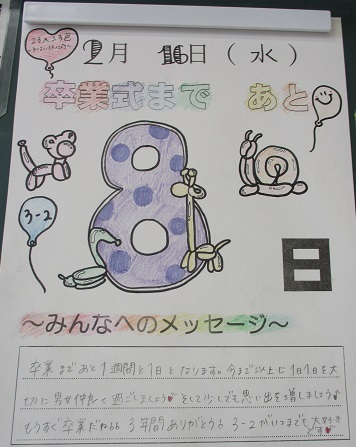 23人二3色
2月 16日 (水)
卒業式まで あと
8
3-2
日
～みんなへのメッセージ～
卒業まであと1週間と1日となります。今まで以上に1日1日を大
切に男女仲良く過ごしましょう♥ そして少しでも思い出を増しましょう♥
もうすぐ卒業だね。。3年間ありがとう。3-2がいつまでも大好き
です♥